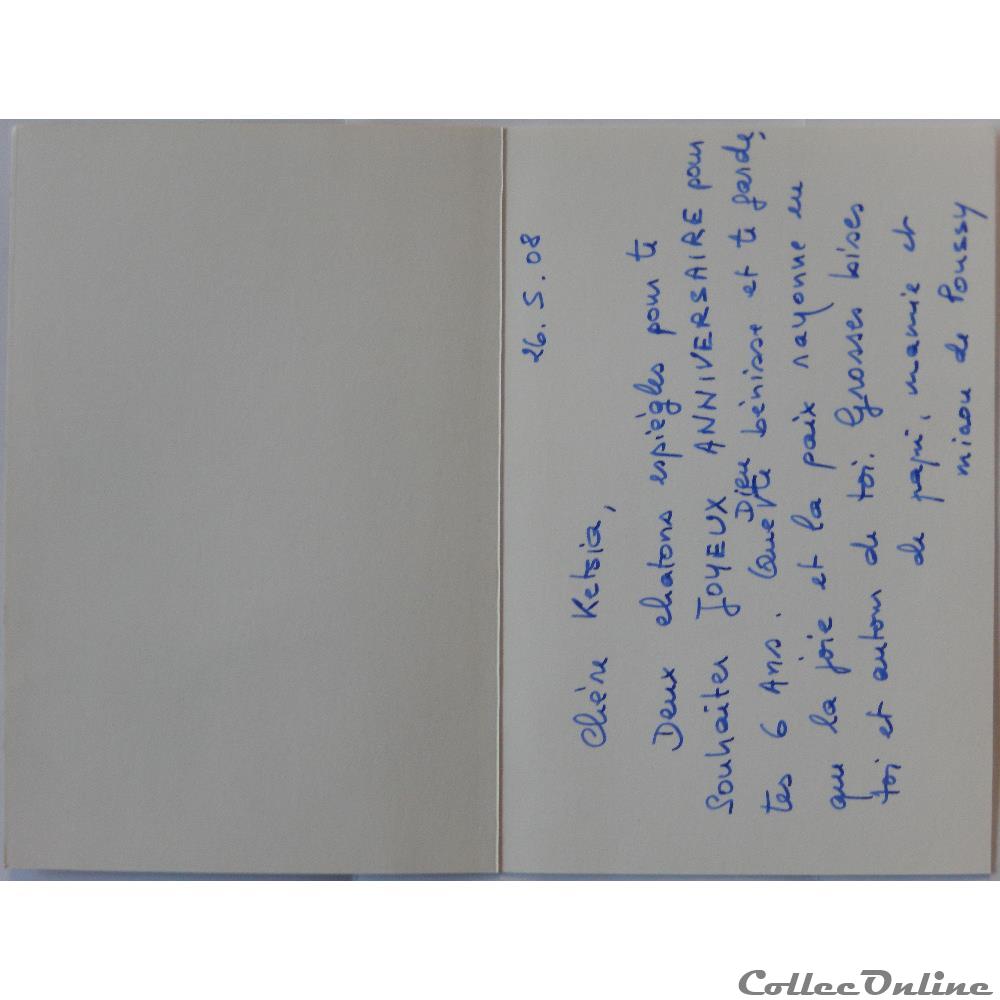 26.5.08
Chère Ketsia,
Deux chatons espiègles pour te
souhaiter JOYEUX ANNIVERSAIRE pour
tes 6 Ans. Que Dieu te bénisse et te garde,
que la joie et la paix rayonne en
toi et autour de toi. Grosses bises
de papi, mamie et
miaou de Poussy
CollecOnline